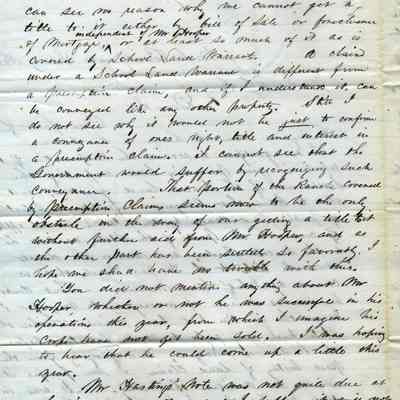 can see no reason why we cannot get a
title to it either by bill of sale or foreclosure
independent of Mr Hooper
of Mortgage, or at least so much of it as is
covered by School Land Warrants. A claim
under a School Land Warrant is different from
a preemption claim, and if I understand it, can
be conveyed like any other property. Still I
do not see why it would not be just to confirm
a conveyance of ones right, title and interest in
a preemption claim. I cannot see that the
Government would suffer by recognizing such
conveyance. That portion of the Ranch covered
by Preemption Claims seems now to be the only
obstacle in the way of our getting a title to it
without further aid from Mr Hooper, and as
the other part has been settled so favorably, I
hope we shall have no trouble with this.
You did not mention anything about Mr
Hooper whether or not he was successful in his
operations this year, from which I imagine his
crops have not yet been sold. I was hoping
to hear that he could come up a little this
year.
Mr Hastings' Note was not quite due at